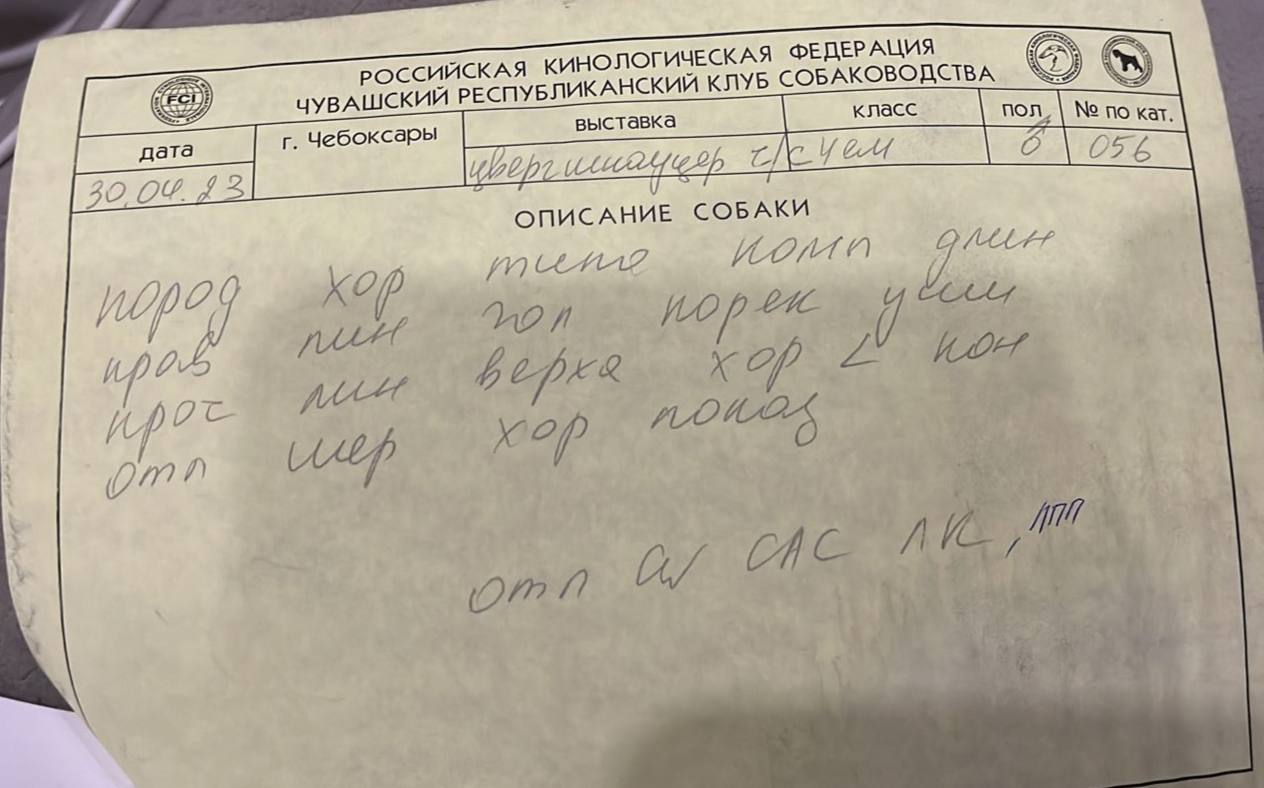 РОССИЙСКАЯ КИНОЛОГИЧЕСКАЯ ФЕДЕРАЦИЯ
ЧУВАШСКИЙ РЕСПУБЛИКАНСКИЙ КЛУБ СОБАКОВОДСТВА
FCI
дата г. Чебоксары выставка класс пол № по кат.
30.04.23 цвергшнауцер ч/с чем ♂ 056
ОПИСАНИЕ СОБАКИ
пород хор типа комп длин
прав лин гол порек уши
проч лин верха хор < кон
отл шер хор показ
отл CW CAC ЛК, ЛПП